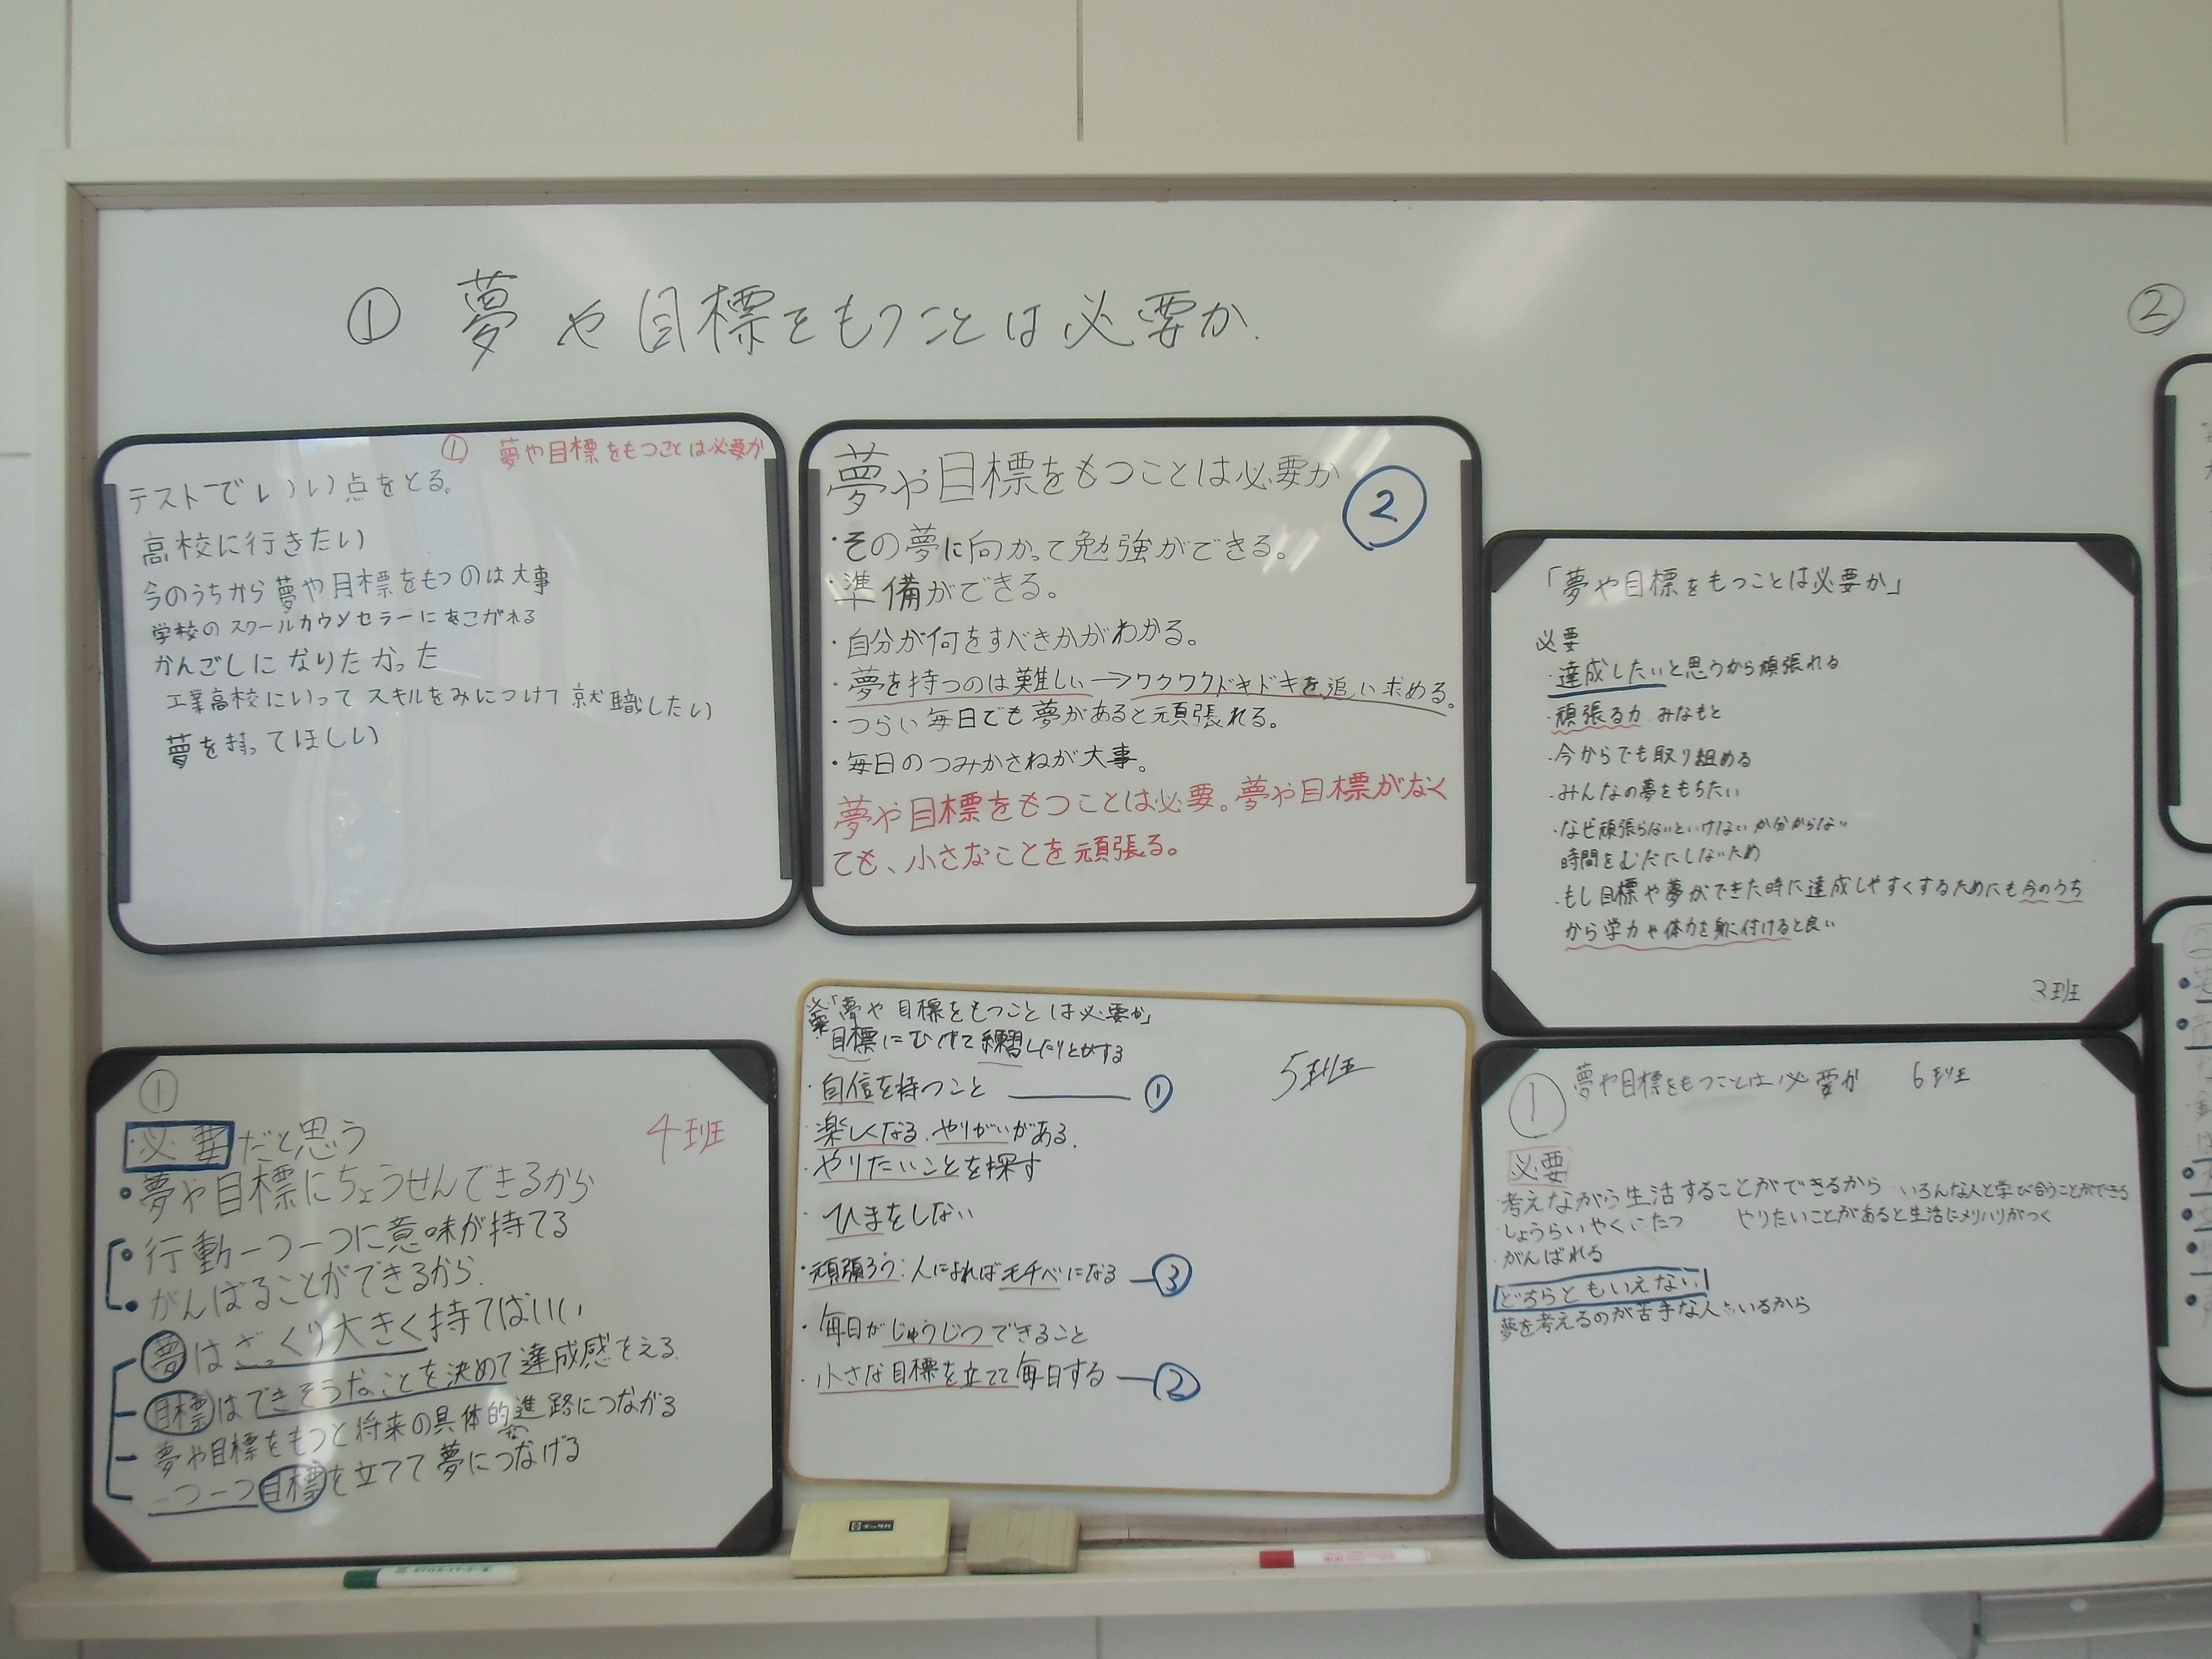 ① 夢や目標をもつことは必要か.
②
① 夢や目標をもつことは必要か
テストでいい点をとる。
高校に行きたい
今のうちから夢や目標をもつのは大事
学校のスクールカウンセラーにあこがれる
かんごしになりたかった
工業高校にいってスキルをみにつけて就職したい
夢を持ってほしい
夢や目標をもつことは必要か
②
・その夢に向かって勉強ができる。
・準備ができる。
・自分が何をすべきかがわかる。
・夢を持つのは難しい→ワクワクドキドキを追い求める。
・つらい毎日でも夢があると頑張れる。
・毎日のつみかさねが大事。
夢や目標をもつことは必要。夢や目標がなく
ても、小さなことを頑張る。
「夢や目標をもつことは必要か」
必要
・達成したいと思うから頑張れる
・頑張る力 みなもと
・今からでも取り組める
・みんなの夢をもちたい
・なぜ頑張らないといけないか分からない
時間をむだにしないため
・もし目標や夢ができた時に達成しやすくするためにも今のうち
から学力や体力を身に付けると良い
3班
①
4班
・必要だと思う
・夢や目標にちょうせんできるから
・行動一つ一つに意味が持てる
・がんばることができるから.
夢はざっくり大きく持てばいい
目標はできそうなことを決めて達成感をえる.
夢や目標をもつと将来の具体的進路につながる
一つ一つ目標を立てて夢につなげる
必要「夢や目標をもつことは必要か」
目標にむけて練習したりとかする
5班
・自信を持つこと ①
・楽しくなる、やりがいがある.
・やりたいことを探す
・ひまをしない
・頑張ろう:人によればモチベになる ③
・毎日がじゅうじつできること
・小さな目標を立てて毎日する ②
① 夢や目標をもつことは必要か 6班
必要
・考えながら生活することができるから ・いろんな人と学び合うことができる
・しょうらいやくにたつ やりたいことがあると生活にメリハリがつく
・がんばれる
どちらともいえない
夢を考えるのが苦手な人もいるから